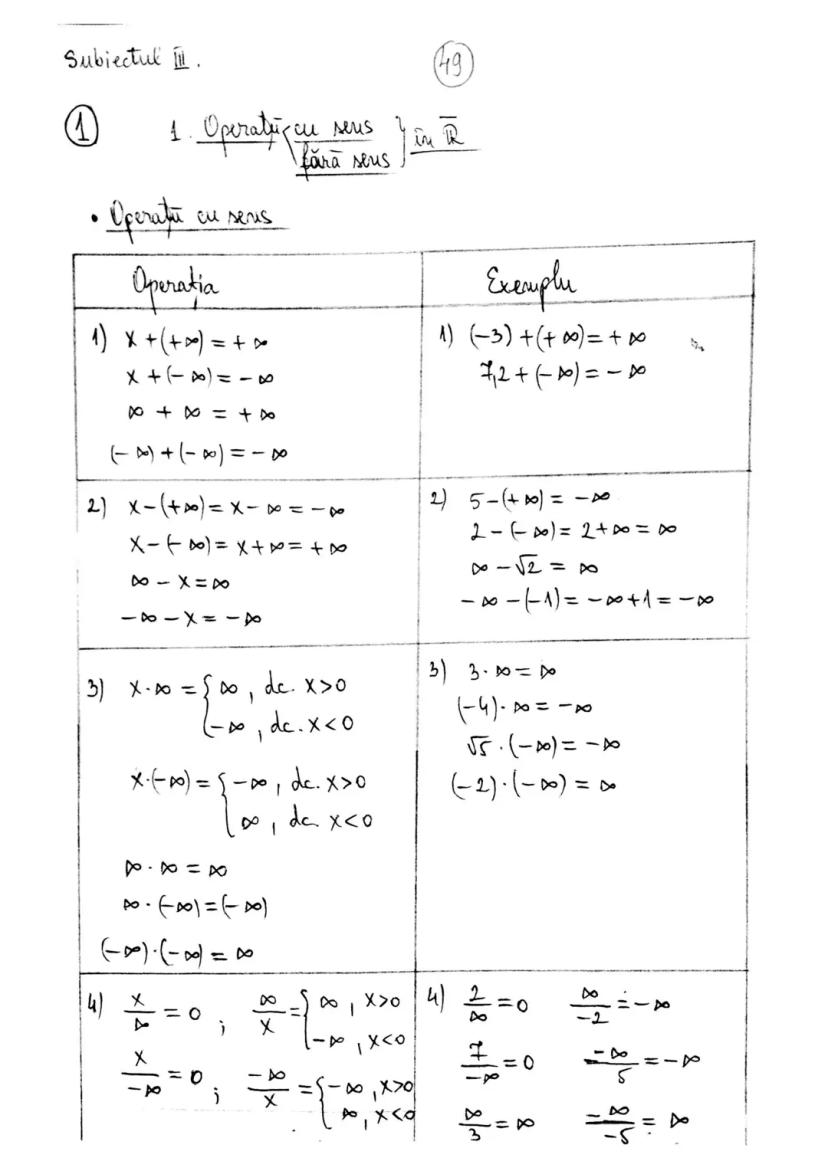 Subiectul III.
49
1
1. Operații cu sens
fără sens
în R̅
• Operații cu sens
Operația
Exemplu
1) x+(+∞)=+∞
x+(-∞)=-∞
∞+∞=+∞
(-∞)+(-∞)=-∞
1) (-3)+(+∞)=+∞
7,2+(-∞)=-∞
2) x-(+∞)=x-∞=-∞
x-(-∞)=x+∞=+∞
∞-x=∞
-∞-x=-∞
2) 5-(+∞)=-∞
2-(-∞)=2+∞=∞
∞-√2=∞
-∞-(-1)=-∞+1=-∞
3) x·∞={∞, dc. x>0
-∞, dc. x<0
x·(-∞)={-∞, dc. x>0
∞, dc. x<0
∞·∞=∞
∞·(-∞)=(-∞)
(-∞)·(-∞)=∞
3) 3·∞=∞
(-4)·∞=-∞
√5·(-∞)=-∞
(-2)·(-∞)=∞
4) x/∞=0; ∞/x={∞, x>0
-∞, x<0
x/-∞=0; -∞/x={-∞, x>0
∞, x<0
4) 2/∞=0 ∞/-2=-∞
7/-∞=0 -∞/5=-∞
∞/3=∞ -∞/-5=∞